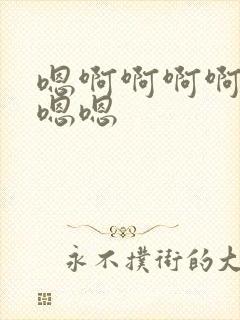 嗯啊啊啊啊
嗯嗯
永不撲街的大